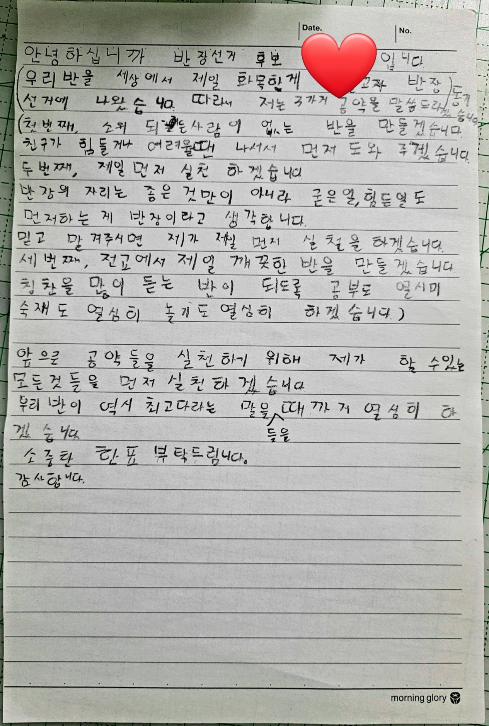 Date.
No.
안녕하십니까 반장선거 후보 입니다
(우리 반을 세상에서 제일 화목한게 고자 반장)
선거에 나왔습니다. 따라서 저는 3가지 공약을 말씀드리
겠습니다
(첫번째, 소외 되는사람이 없는 반을 만들겠습니다
친구가 힘들거나 어려울때 나서서 먼저 도와 주겠습니다.
두번째, 제일 먼저 실천 하겠습니다
반장의 자리는 좋은 것만이 아니라 궂은일, 힘든일도
먼저하는 게 반장이라고 생각합니다.
믿고 맡겨주시면 제가 제일 먼저 실천을 하겠습니다.
세번째, 전교에서 제일 깨끗한 반을 만들겠습니다
칭찬을 많이 듣는 반이 되도록 공부도 열시미
숙제도 열심히 놀기도 열심히 하겠습니다)
앞으로 공약들을 실천하기 위해 제가 할 수있는
모든것들을 먼저 실천하겠습니다
우리반이 역시 최고다라는 말을 때까지 열심히 하
들을
겠습니다
소중한 한표 부탁드립니다.
감사합니다.
morning glory